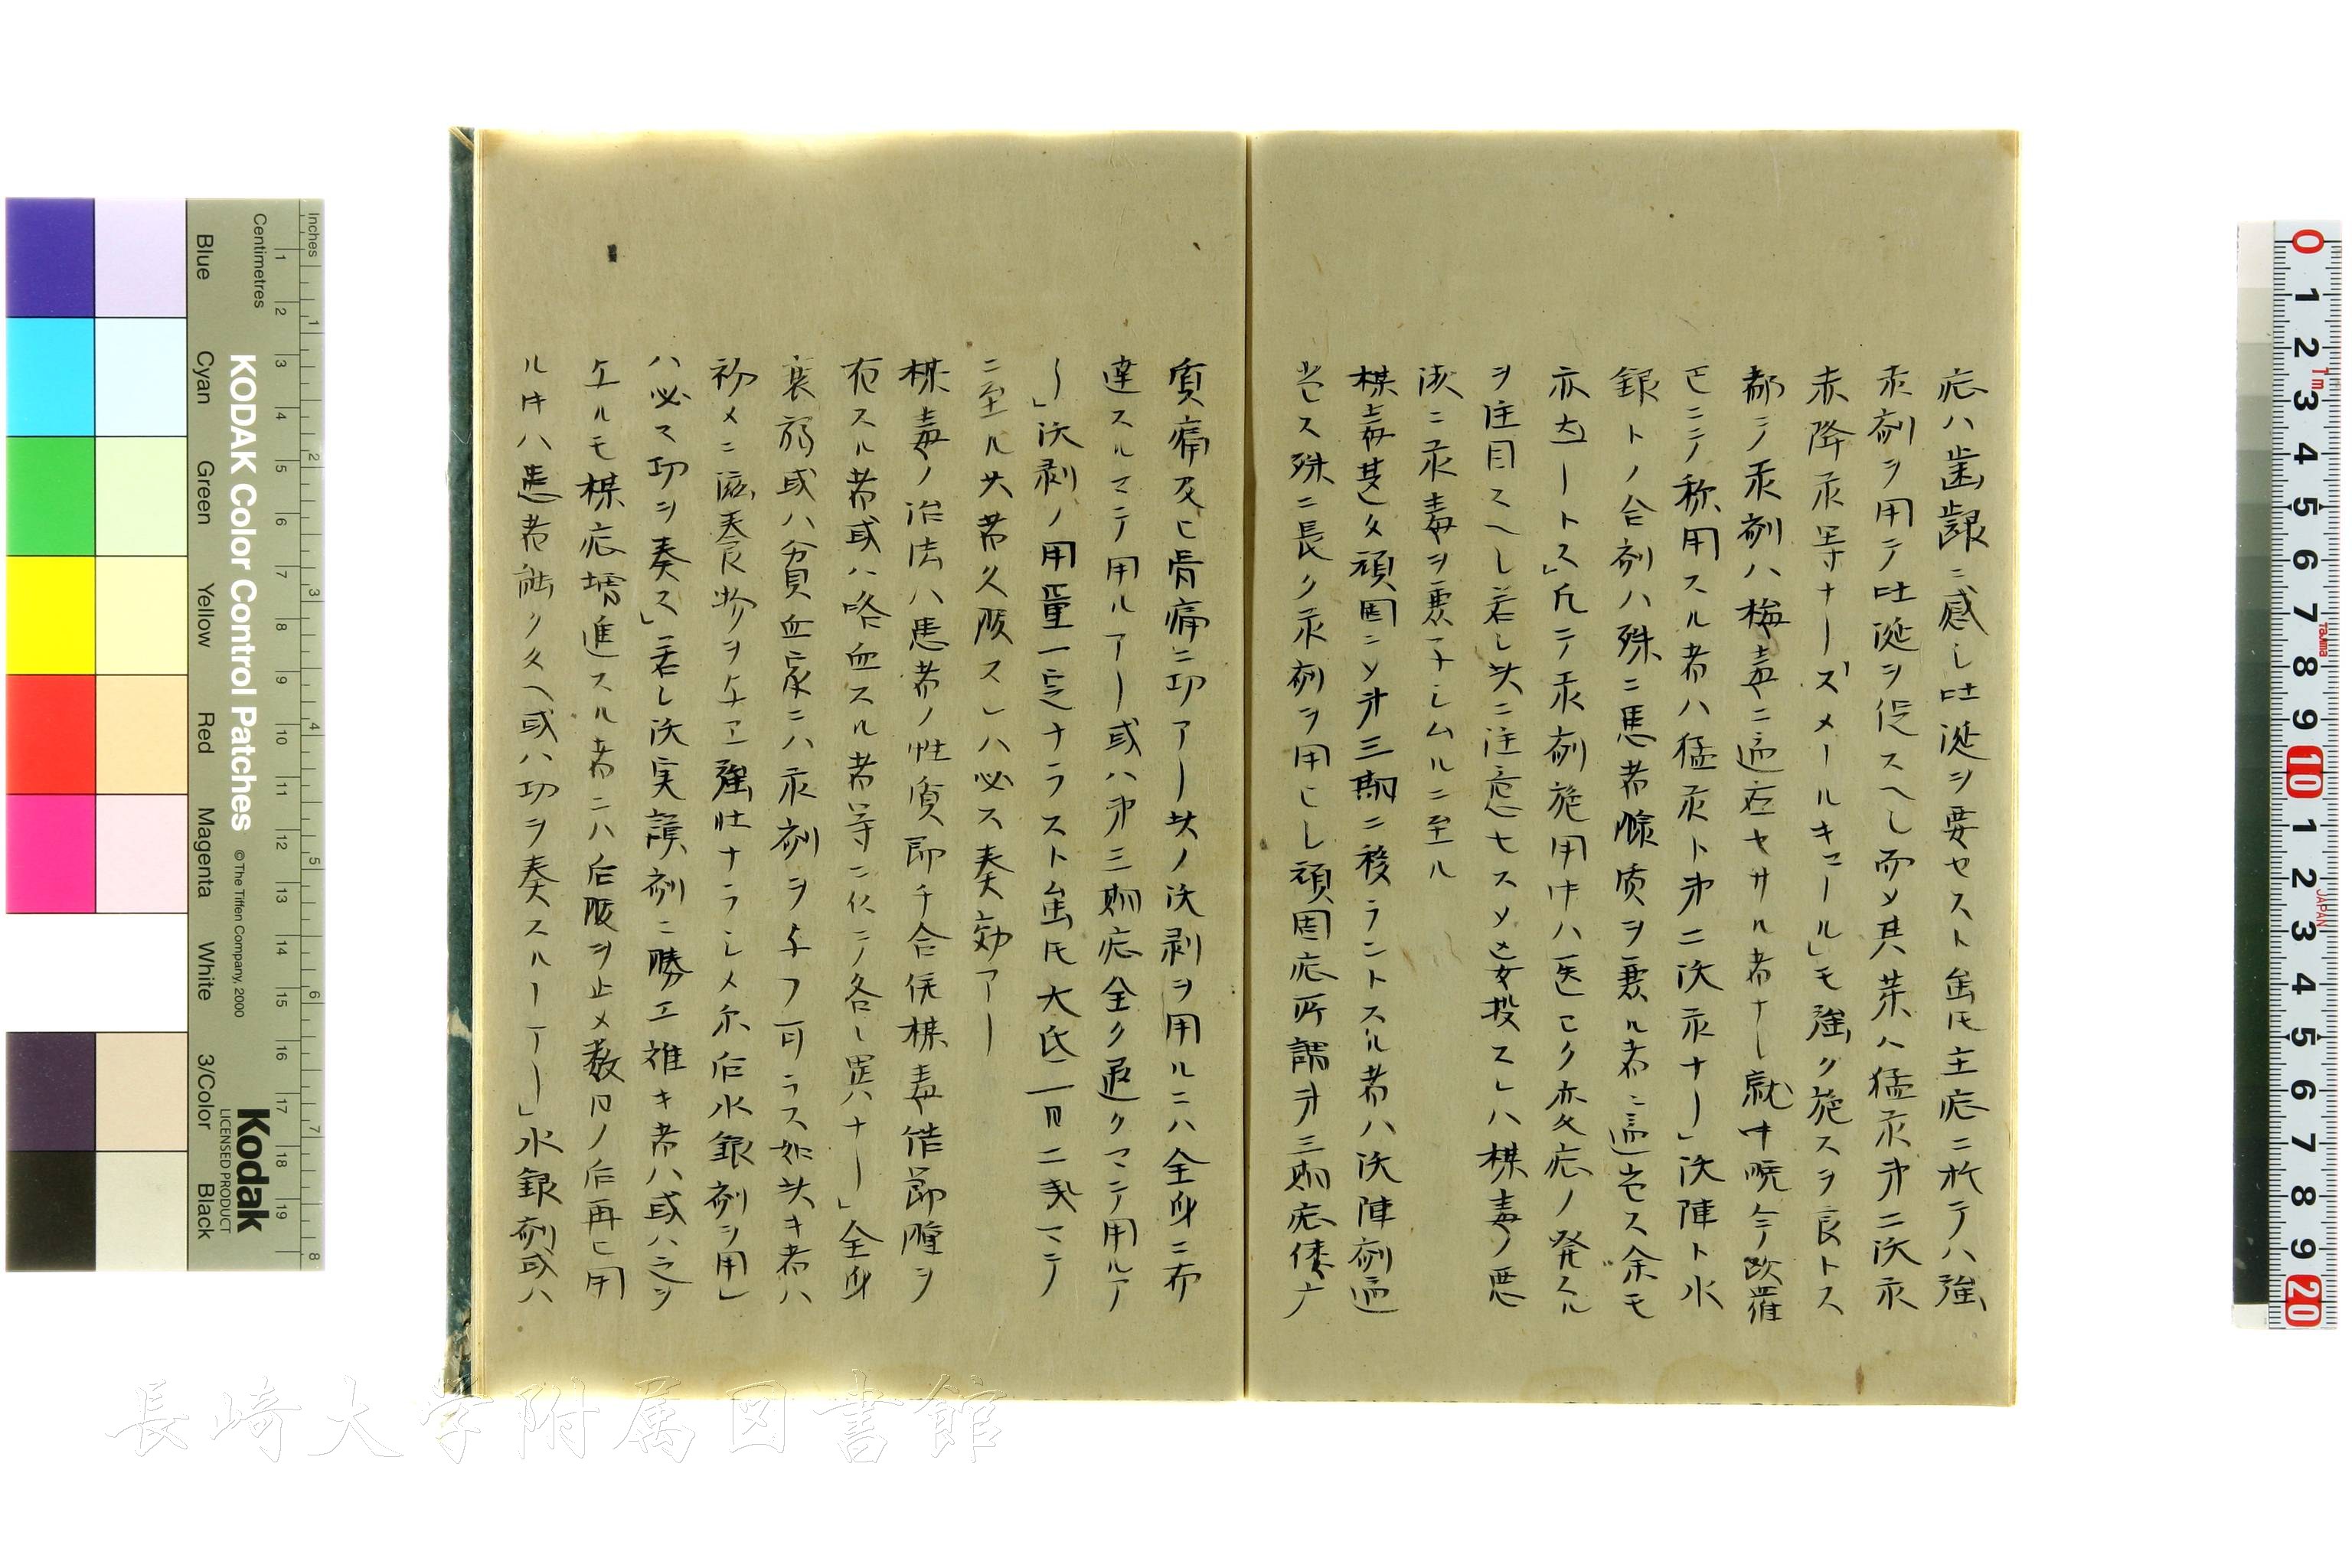 症ハ歯齦ニ感シ吐涎ヲ要セスト雖𪜈主症ニ於テハ強
汞剤ヲ用テ吐涎ヲ促スヘシ而メ其薬ハ猛汞第二沃汞
赤降汞等ナリズメールキュール」モ強ク施スヲ良トス
都テ汞剤ハ梅毒ニ適応セサル者ナシ就中晩今欧羅
巴ニテ称用スル者ハ猛汞ト第二沃汞ナリ」沃陣ト水
銀トノ合剤ハ殊ニ患者腺质ヲ兼ル者ニ適当ス余モ
亦
ート ス」凡テ汞剤施用中ハ医ヨク亦変症ノ発スル
ヲ注目スヘシ若シ其ニ注意セスメ妄投スレハ楳毒ノ悪
液ニ汞毒ヲ兼子シムルニ至ル
楳毒甚タ頑固ニメ第三期ニ移ラントスル者ハ沃陣剤適
当ス殊ニ長ク汞剤ヲ用ヒシ頑固症所謂第三期症僂
質痛及ヒ骨痛ニ功アリ其ノ沃剥ヲ用ルニハ全身ニ布
達スルマテ用ルアリ或ハ第三期症全ク退クマテ用ルア
リ」沃剥ノ用量一定ナラスト雖𪜈大氐一日二
マテ
ニ至ル其者久服スレハ必ス奏効アリ
楳毒ノ治法ハ患者ノ性質即チ合併楳毒
ヲ
有スル者或ハ咯血スル者等ニ仍テ各シ異ハナシ」全身
衰弱或ハ貧血家ニハ汞剤ヲ与フ可ラス如其キ者ハ
初メニ滋養物ヲ与エ強壮ナラシメ尓后水銀剤ヲ用レ
ハ必ス功ヲ奏ス」若シ沃実謨剤ニ勝エ難キ者ハ或ハ之ヲ
与ルモ楳症増進スル者ニハ后服ヲ止メ数日ノ后再ヒ用
ル中ハ患者能ク久ヘ或ハ功ヲ奏スルーアリ」水銀剤或ハ
Inches
Centimetres
KODAK Color Control Patches
© The Tiffen Company, 2000
Kodak
LICENSED PRODUCT
Blue
Cyan
Green
Yellow
Red
Magenta
White
3/Color
Black
長崎大学附属図書館